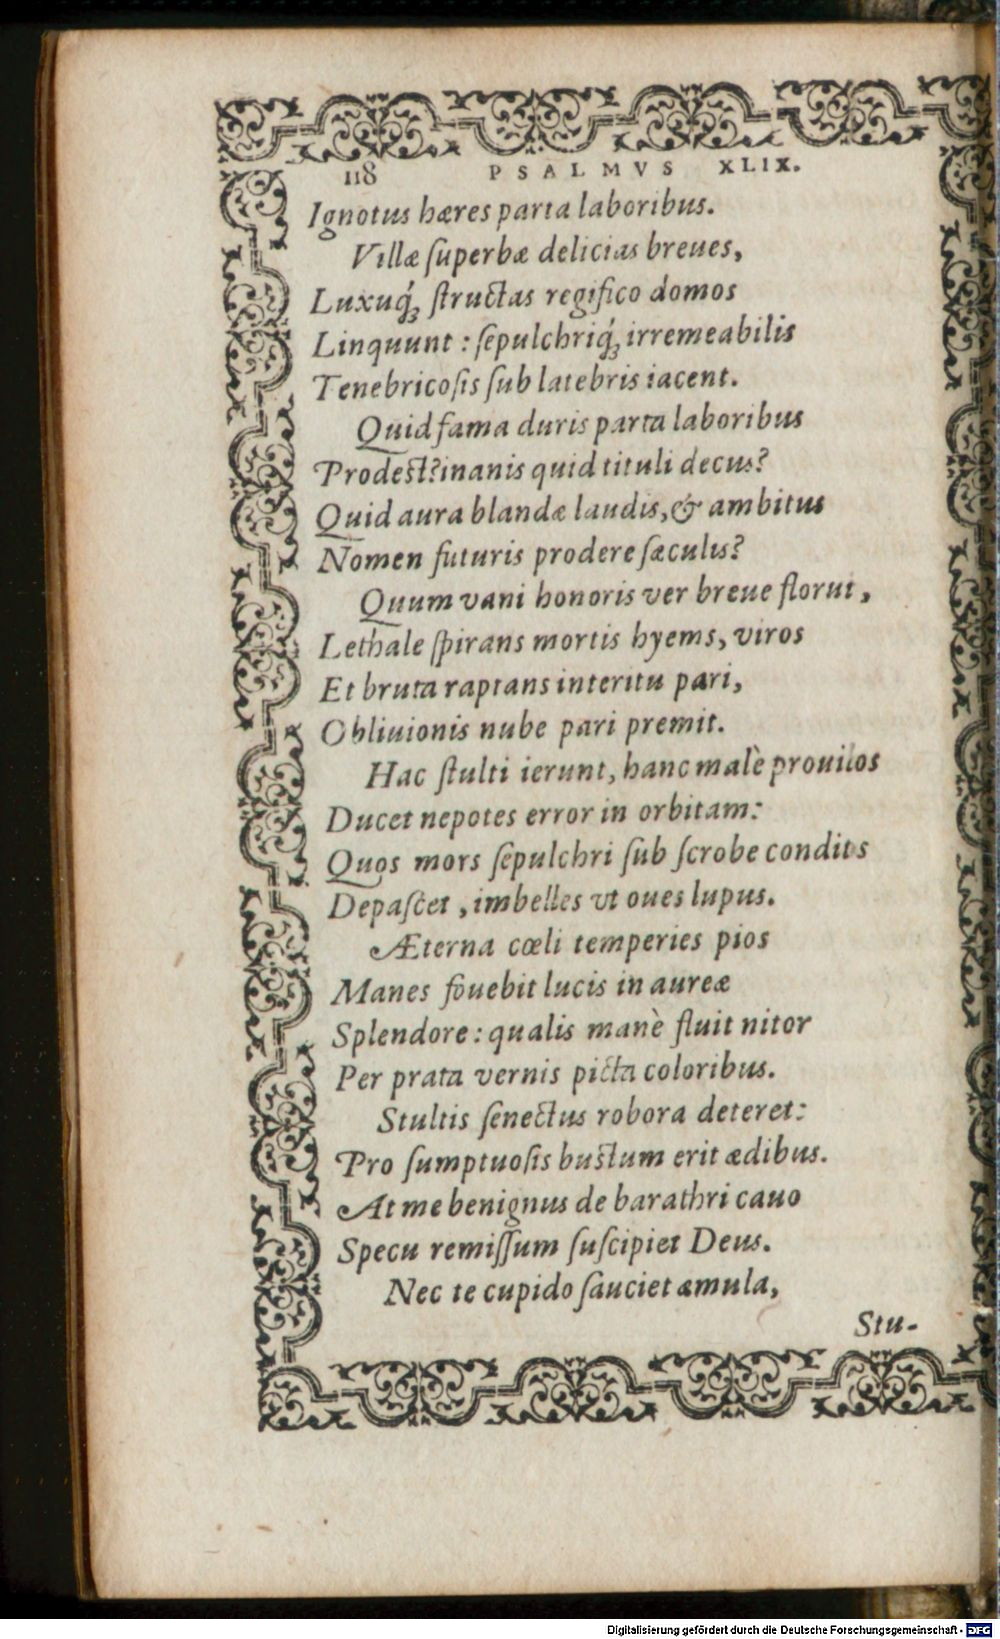 118 PSALMVS XLIX.
Ignotus hæres parta laboribus.
Villæ ſuperbæ delicias breues,
Luxuq́ꝫ ſtructas regifico domos
Linquunt : ſepulchriq́ꝫ irremeabilis
Tenebricoſis ſub latebris iacent.
Quid fama duris parta laboribus
Prodeſt? inanis quid tituli decus?
Quid aura blandæ laudis, & ambitus
Nomen futuris prodere ſæculis?
Quum vani honoris ver breue florut,
Lethale ſpirans mortis hyems, viros
Et bruta raptans interitu pari,
Obliuionis nube pari premit.
Hac ſtulti ierunt, hanc malè prouiſos
Ducet nepotes error in orbitam:
Quos mors ſepulchri ſub ſcrobe condits
Depaſcet, imbelles vt oues lupus.
Æterna cœli temperies pios
Manes fouebit lucis in aureæ
Splendore : qualis manè fluit nitor
Per prata vernis picta coloribus.
Stultis ſenectus robora deteret:
Pro ſumptuoſis buſtum erit ædibus.
At me benignus de barathri cauo
Specu remiſſum ſuſcipiet Deus.
Nec te cupido ſauciet æmula,
Stu-
Digitalisierung gefördert durch die Deutsche Forschungsgemeinschaft - DFG